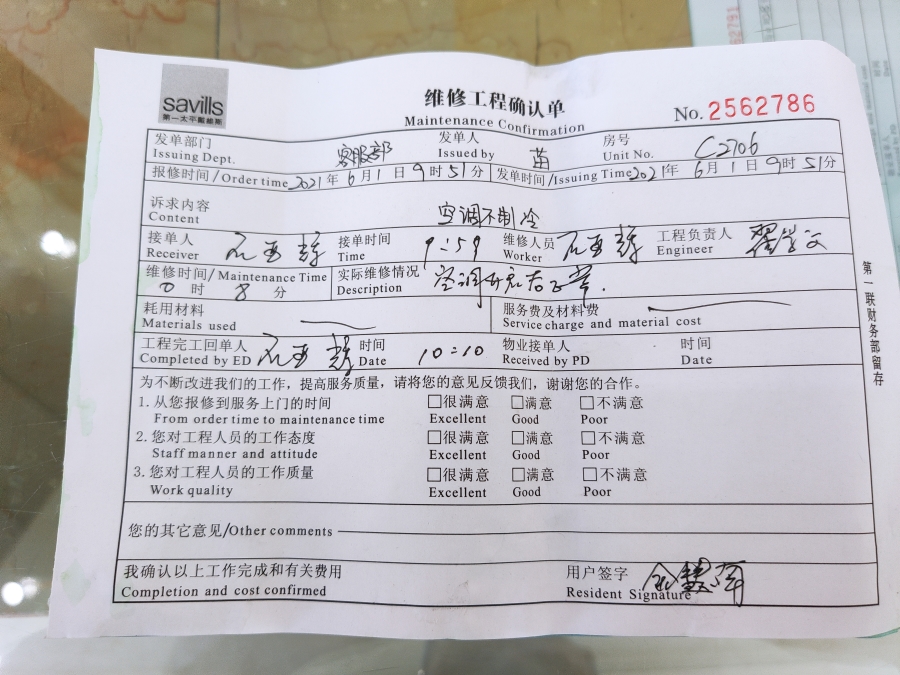 savills
第一太平戴维斯
维修工程确认单
Maintenance Confirmation
No. 2562786
发单部门 客服部 发单人 苗 房号 C2706
Issuing Dept. Issued by Unit No.
报修时间/Order time 2021年6月1日9时51分 发单时间/Issuing Time 2021年6月1日9时51分
诉求内容 空调不制冷
Content
接单人 接单时间 9:59 维修人员 工程负责人
Receiver Time Worker Engineer
维修时间/Maintenance Time 实际维修情况 空调
0时8分 Description
耗用材料 服务费及材料费
Materials used Service charge and material cost
工程完工回单人 时间 10:10 物业接单人 时间
Completed by ED Date Received by PD Date
为不断改进我们的工作，提高服务质量，请将您的意见反馈我们，谢谢您的合作。
1.从您报修到服务上门的时间 □很满意 □满意 □不满意
From order time to maintenance time Excellent Good Poor
2.您对工程人员的工作态度 □很满意 □满意 □不满意
Staff manner and attitude Excellent Good Poor
3.您对工程人员的工作质量 □很满意 □满意 □不满意
Work quality Excellent Good Poor
您的其它意见/Other comments
我确认以上工作完成和有关费用 用户签字
Completion and cost confirmed Resident Signature
第一联财务部留存